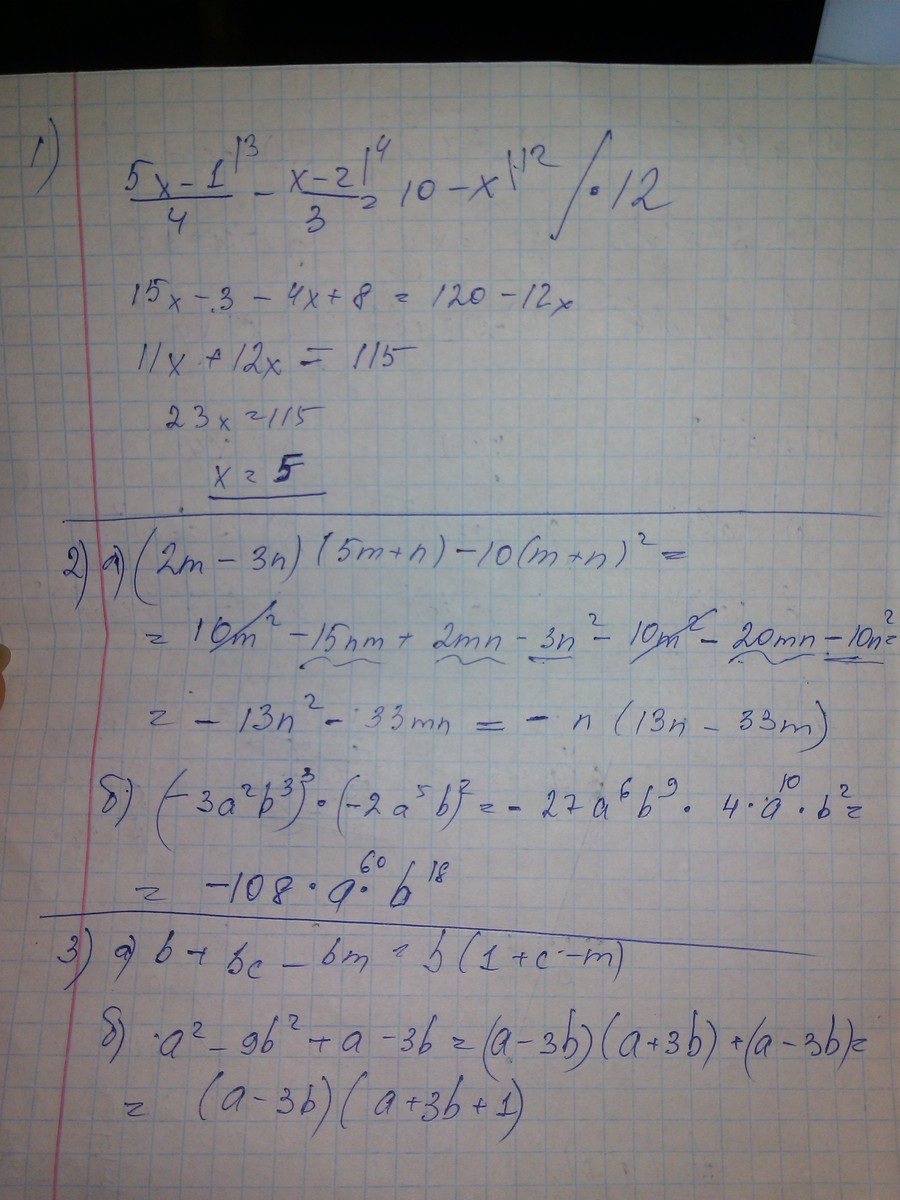 1)
5x-1|³/4 - x-2|⁴/3 = 10 - x|¹² / · 12
15x - 3 - 4x + 8 = 120 - 12x
11x + 12x = 115
23x = 115
x = 5
2) а) (2m - 3n) (5m + n) - 10 (m + n)² =
= 10m² - 15nm + 2mn - 3n² - 10m² - 20mn - 10n² =
= - 13n² - 33mn = - n (13n - 33m)
б) (-3a²b³)³ · (-2a⁵b)² = - 27a⁶b⁹ · 4 · a¹⁰ · b² =
= -108 · a⁶⁰ · b¹⁸
3) а) b + bc - bm = b (1 + c - m)
б) · a² - 9b² + a - 3b = (a - 3b) (a + 3b) + (a - 3b) =
= (a - 3b) (a + 3b + 1)